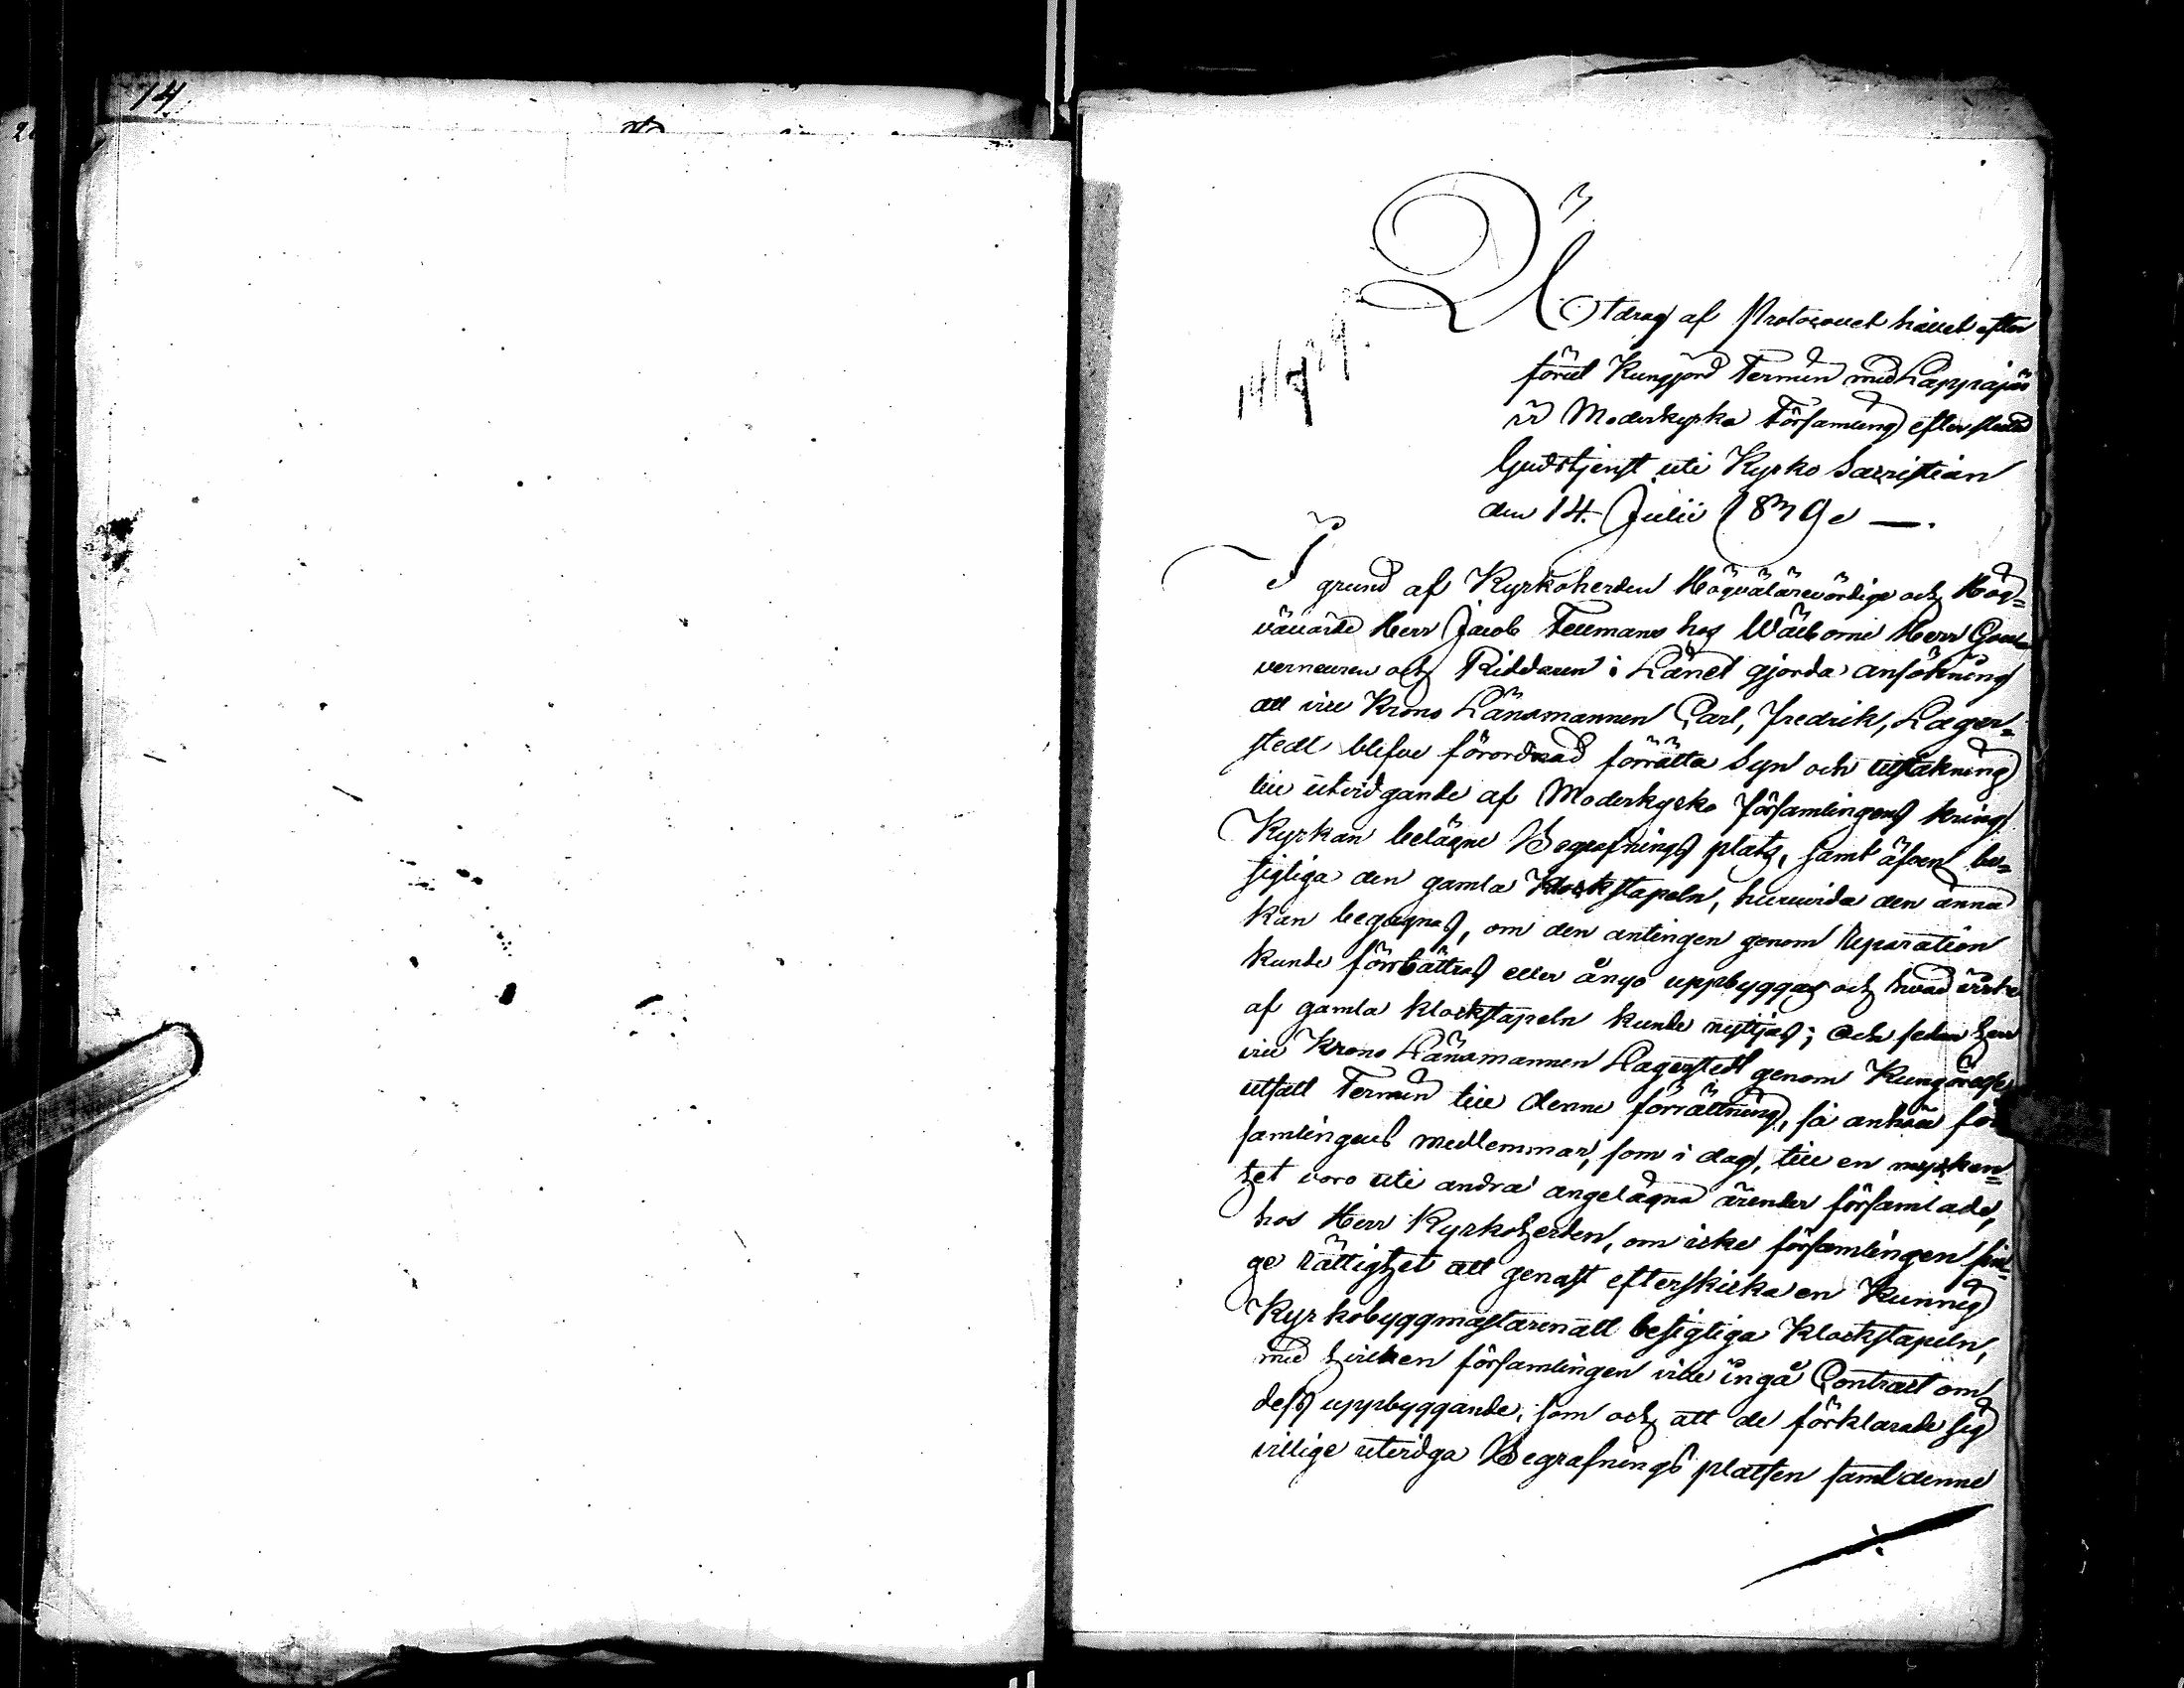 14
Utdrag af Protocollet hållet efter
förut Kungjord Termin med Lappajär
vi Moderkyrko Församling efter slutad
Gudstjenst uti Kyrko Sacristian
den 14. Julii 1839
14/7 39.
I grund af Kyrkoherden Högvälärevördige och Hög=
vällärde Herr Jacob Tellmans hos Wälborne Herr Gou
verneuren och Riddaren i Länet gjorda ansökning
att vice Krono Länsmannen Carl, Fredrik, Lager=
stedt blefve förordnad förrätta Syn och utstakning
till utvidgande af Moderkyrko församlingens kring
Kyrkan belägne Begrafnings plats, samt äfven be=
sigtiga den gamla Klockstapeln, huruvida den ännu
kan begagnas, om den antingen genom Reparation
kunde förbättras eller ånyo uppbyggas och hvad virke
af gamla klockstapeln kunde nyttjas; Och sedan han
vice Krono Länsmannen Lagerstedt genom Kungörelse
utsatt Termin till denne förrättning, så anhöll för
samlingens medlemmar, som i dag, till en myckenhet=
het voro uti andra angelägna ärender församlade,
hos Herr Kyrkoherden, om icke församlingen fin=
ge rättighet att genast efterskicka en Kunnig
Kyrkobyggmästaren att besigtiga Klockstapeln,
med hvilken församlingen ville ingå Contract om
dess uppbyggande; som och att de förklarade sig
villige utvidga Begrafnings platsen samt denne